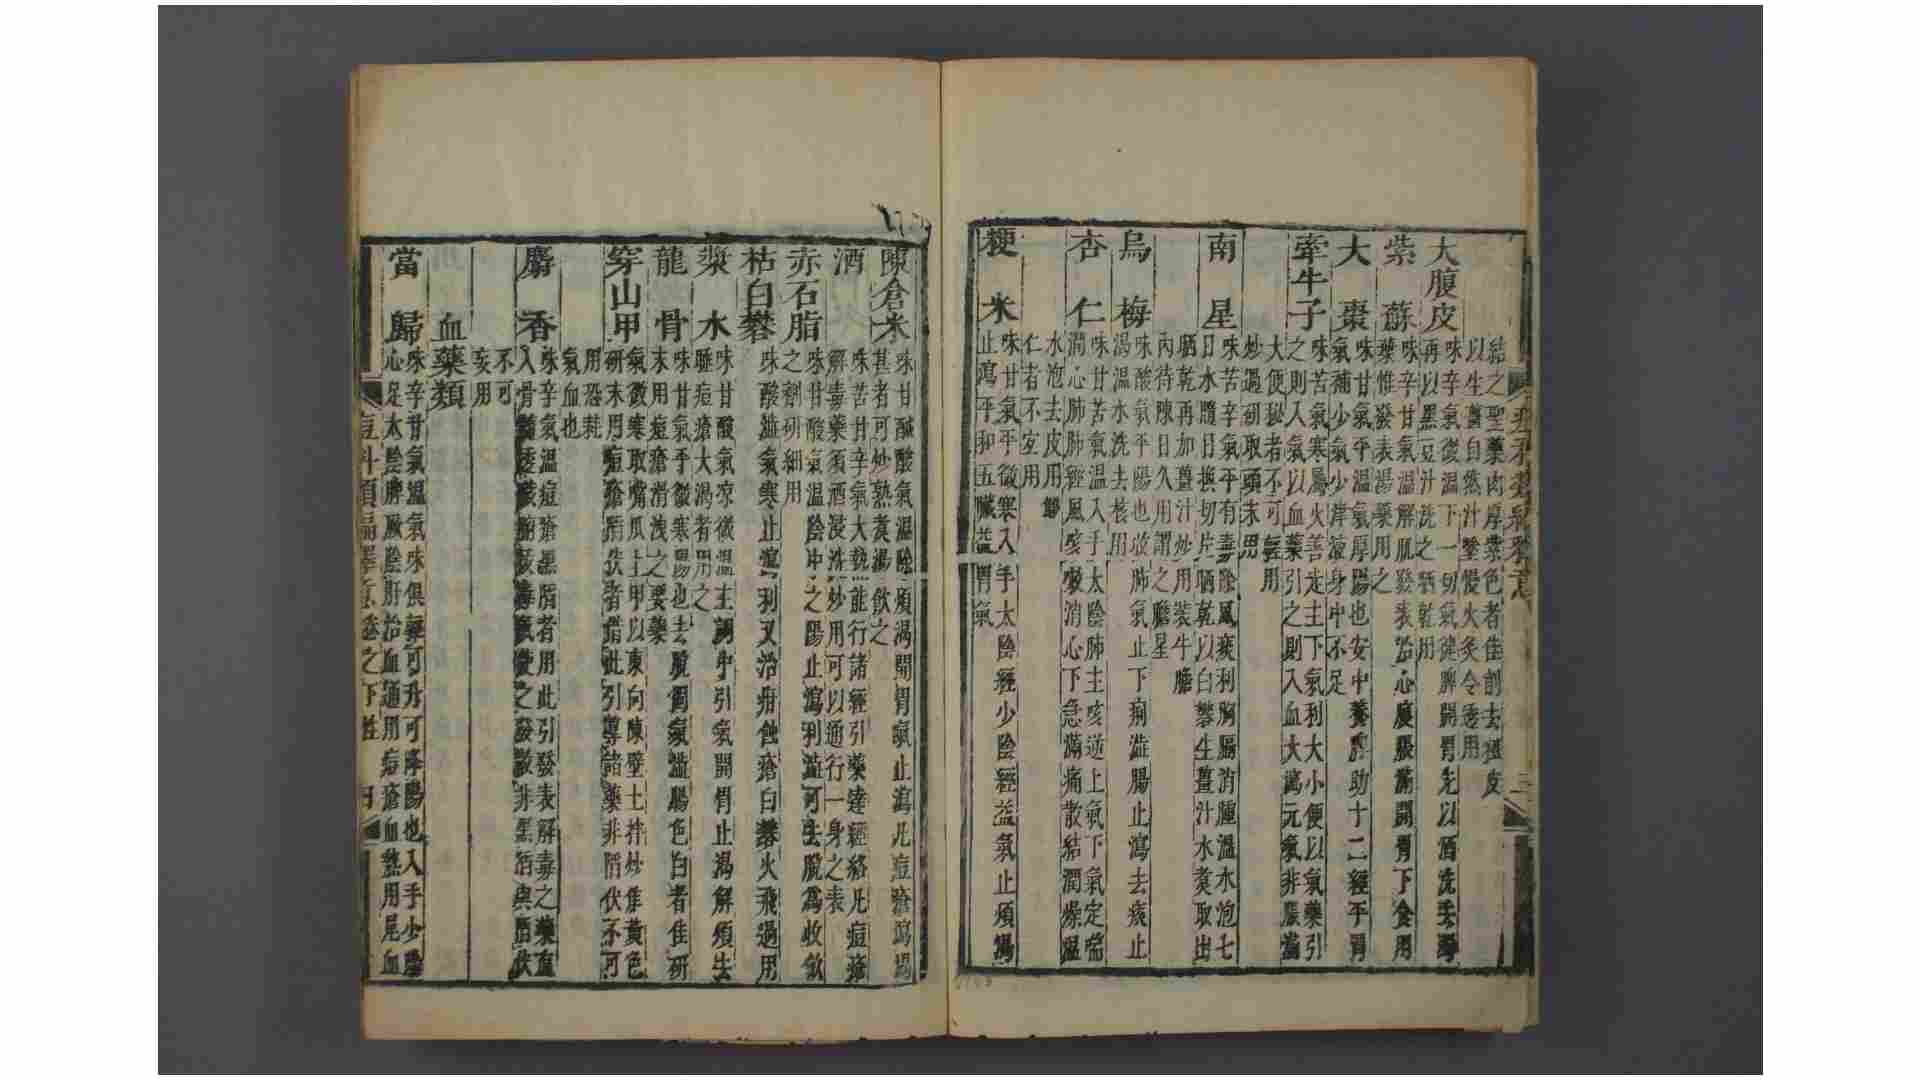 結之聖藥肉厚紫色者佳剖去極皮
以生薑自然汁墜慢火炙令透用
大腹皮
味辛氣微溫下一切氣健脾開胃先以酒洗
再以黑豆汁洗之晒乾用
紫蘇
味辛甘氣溫解肌發表治心腹脹滿開胃下食用
藥惟發表湯藥用之
大棗
味甘氣平溫氣厚陽也安中養脾助十二經平胃
氣補少氣少津液身中不足
牽牛子
味苦氣寒屬火善走主下氣利大小便以氣藥引
之則入氣以血藥引之則入血大瀉元氣非脹滿
大便秘者不可輕用
炒過研取頭末用
南星
味苦辛氣平有毒除風痰利胸膈消腫溫水泡七
日水隨日換切片晒乾以白礬生薑汁水煑取出
晒乾再加薑汁炒用裝牛膽
內待陳日久用謂之膽星
烏梅
味酸氣平陽也收肺氣止下痢澁腸止瀉去痰止
渴溫水洗去核用
杏仁
味甘苦氣溫入手太陰肺主咳逆上氣下氣定喘
潤心肺肺經風咳嗽消心下急滿痛散結潤燥溫
水泡去皮用
仁者不宜用
粳米
味甘氣平微寒入手太陰經少陰經益氣止煩渴
止瀉平和五臟益胃氣
陳倉米
味甘醎酸氣溫除煩渴開胃氣止瀉凡痘瘡瀉渴
甚者可炒熟煑湯飲之
酒
味苦甘辛氣大熱能行諸經引藥達經絡凡痘瘡
解毒藥須酒浸洗炒用可以通行一身之表
赤石脂
味甘酸氣溫陰中之陽止瀉利澁可去脫爲收斂
之劑研細用
枯白礬
味酸澁氣寒止瀉利又治疳蝕瘡白礬火飛過用
漿水
味甘酸氣凉微溫主調中引氣開胃止渴解煩去
睡痘瘡大渴者用之
龍骨
味甘氣平微寒陽也去脫固氣澁腸色白者佳研
末用痘瘡滑洩之要藥
穿山甲
氣微寒取嘴爪土甲以東向陳壁土拌炒焦黃色
研末用痘瘡陷伏者借此引導諸藥非陷伏不可
用恐耗
氣血也
麝香
味辛氣溫痘瘡黑陷者用此引發表解毒之藥直
入骨髓透臟腑
不可
妄用
血藥類
當歸
味辛甘氣溫氣味俱輕可升可降陽也入手少陰
心足太陰脾厥陰肝治血通用痘瘡血熱用尾血